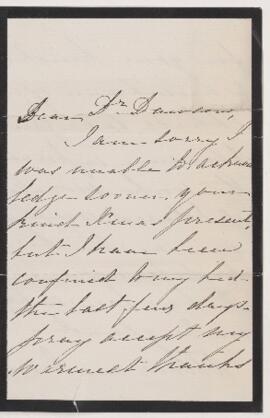 Dear Dr. Dawson,
I am sorry I
was unable to acknow
ledge sooner, your
kind Xmas present,
but I have been
confined to my bed
the last few days -
pray accept my
warmest thanks